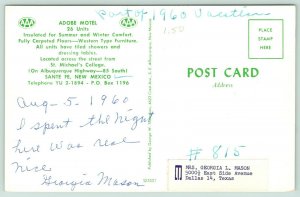 Part of 1960 Vacation
1.50
AAA
AAA
ADOBE MOTEL
26 Units
Insulated for Summer and Winter Comfort.
Fully Carpeted Floors—Western Type Furniture.
All units have tiled showers and
dressing tables.
Located across the street from
St. Michael's College.
(On Albuquerque Highway—85 South)
SANTE FE, NEW MEXICO
Telephone YU 3-1694 - P O Box 1196
Aug-5-1960
I spent the Night
here was real
nice
Georgia Mason
POST CARD
Address
PLACE
STAMP
HERE
# 815
MRS. GEORGIA L. MASON
5000½ East Side Avenue
Dallas 14, Texas